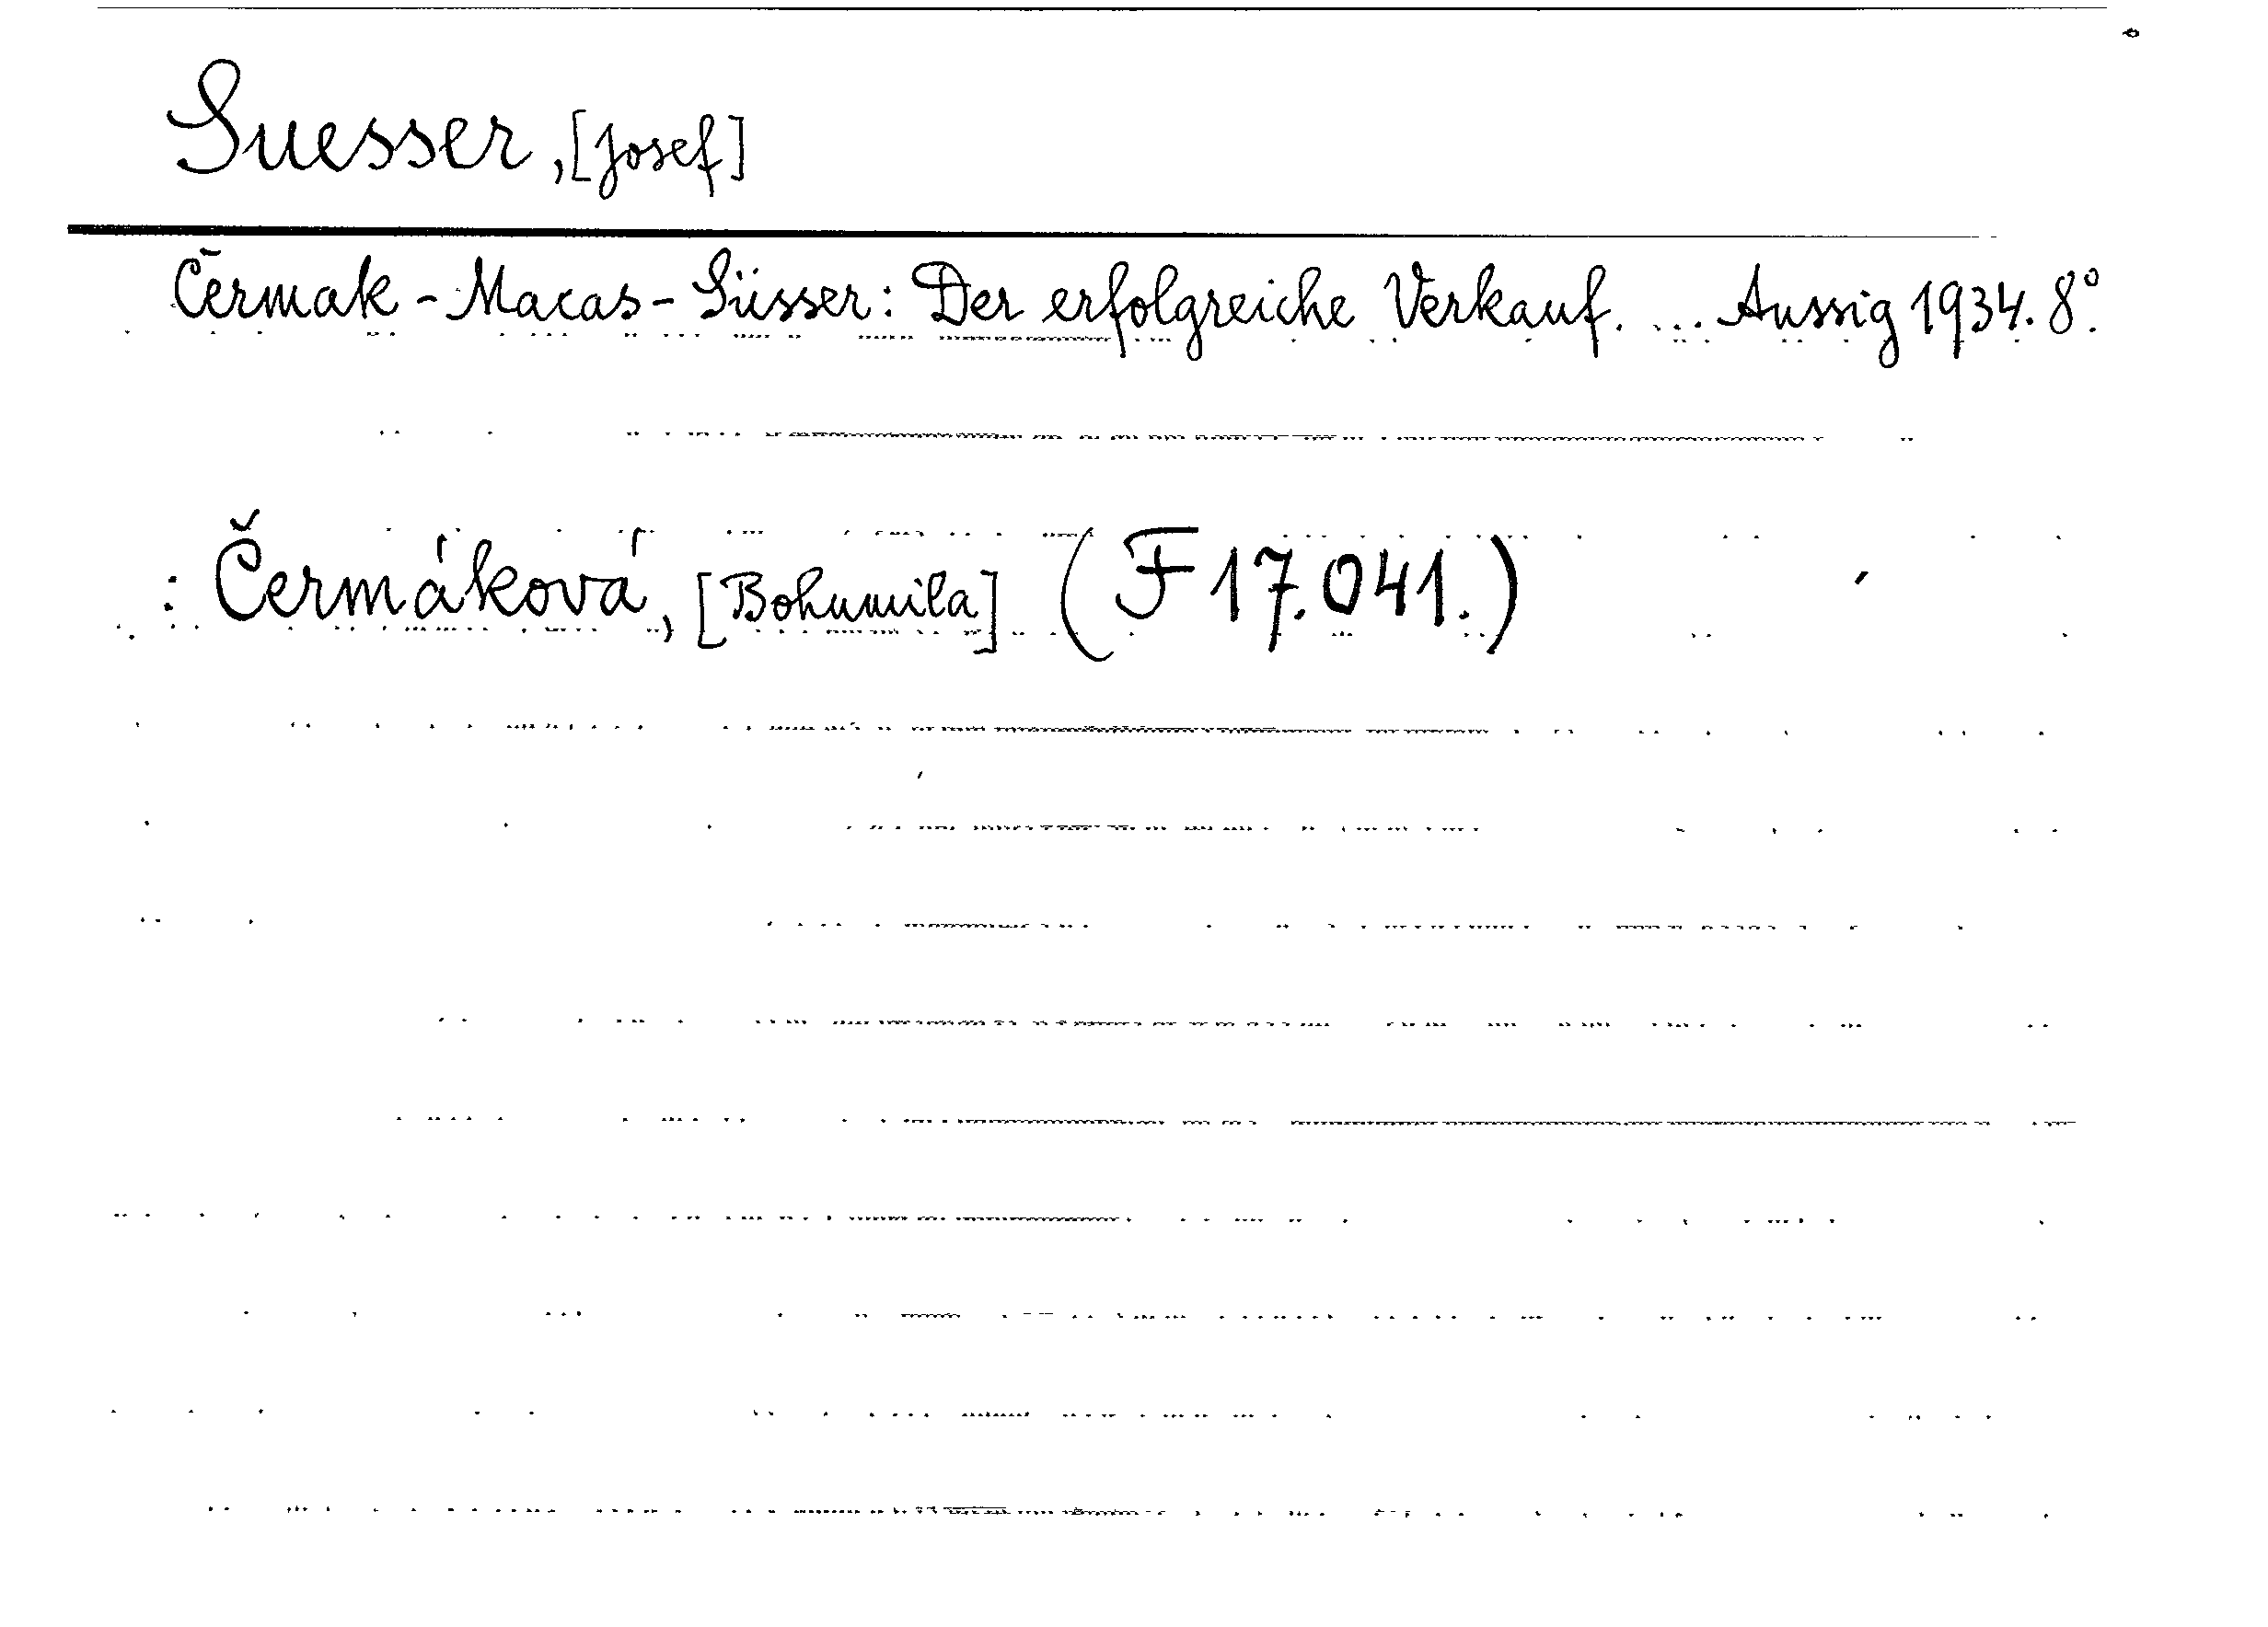 Suesser, [Josef]
Čermak - Macas - Süsser: Der erfolgreiche Verkauf. ... Aussig 1934. 8°.
: Čermáková, [Bohumila] (F 17.041.)